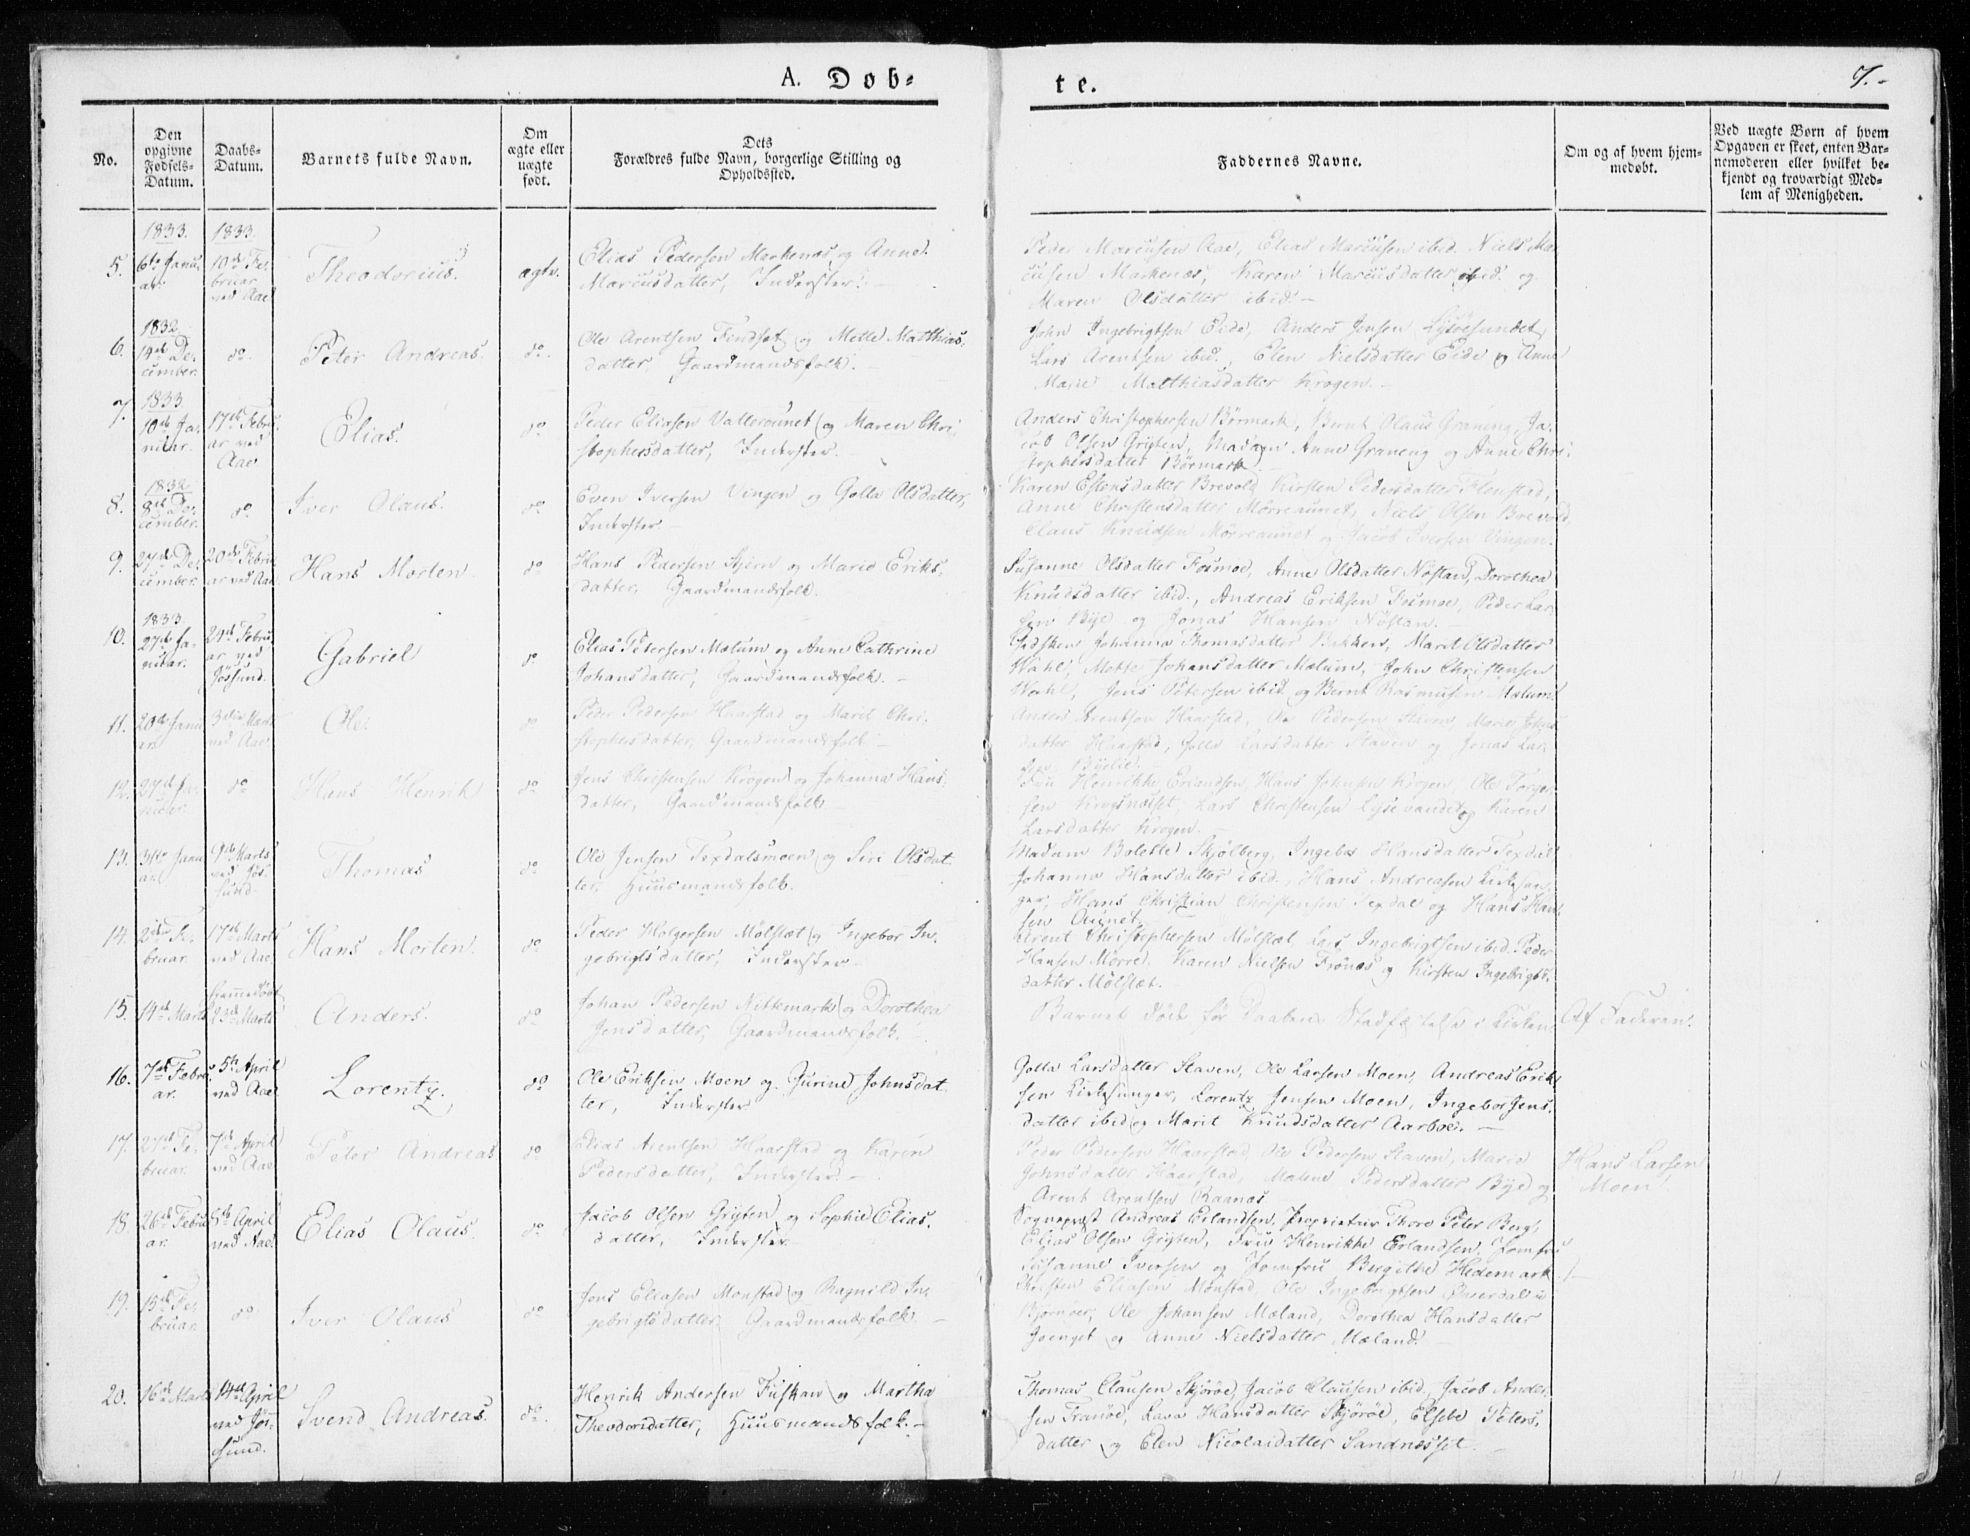 A. Døb-
te.
7.-
No.
Den opgivne Fødsels-Datum.
Daabs-Datum.
Barnets fulde Navn.
Om ægte eller uægte født.
Dets Forældres fulde Navn, borgerlige Stilling og Opholdssted.
Faddernes Navne.
Om og af hvem hjem-
medøbt.
Ved uægte Børn af hvem
Opgaven er skeet, enten Bar-
nemoderen eller hvilket be-
kjendt og troværdigt Med-
lem af Menigheden.
1833. 1833.
5. 6te Janu-
ar. 10de Fe-
bruar
ved Aae
Theodorius. ægte.
Elias Pedersen Markenæs og Anne
Marcusdatter, Inderster. -
Peder Marcusen Aae, Elias Marcusen ibid. Niels Mar-
cusen Markenæs, Karen Marcusdatter ibid. og
Maren Olsdatter ibid. -
1832
6. 14de De-
cember. do. Peter Andreas. do.
Ole Arentsen Fendset og Mette Matthias-
datter, Gaardmandsfolk. -
John Ingebrigtsen Eide, Anders Jensen Lysøesundet,
Lars Arentsen ibid., Elen Nielsdatter Eide og Anne
Marie Matthiasdatter Krogen. -
1833
7. 10de Ja-
nuar. 17de Febru-
ar ved
Aae
Elias. do
Peder Eliesen Valleraunet og Maren Chri-
stophersdatter, Inderster. -
Anders Christophersen Børmark, Bernt Olaus Graning, Ja-
cob Olsen Grigten, Madam Anne Graneng og Anne Chri-
stophersdatter Børmark
1832
8. 8de De-
cember. do Iver Olaus. do
Even Iversen Vingen og Golla Olsdatter,
Inderster -
Karen Estensdatter Brevold, Kirsten Pedersdatter Flenstad,
Anne Christensdatter Mørreaunet, Niels Olsen Brevold
Claus Knudsen Mørreaunet og Jacob Iversen Vingen.
9. 27de De-
cember. 20de Febru-
ar ved Aae
Hans Morten do
Hans Pedersen Stjern og Marie Eriks-
datter, Gaardmandsfolk.
Susanne Olsdatter Fosmoe, Anne Olsdatter Nøstan, Dorothea
Knudsdatter ibid., Andreas Eriksen Fosmoe, Peder Lar-
sen Bye og Jonas Hansen Nøstan. -
1833.
10. 27de Ja-
nuar. 24de Febru-
ar ved
Jøssund.
Gabriel do
Elias Petersen Mælum og Anne Cathrine
Johansdatter, Gaardmandsfolk. -
Johanna Thomasdatter Bakken, Marit Olsdatter
Wahl, Mette Johansdatter Mælum, John Christensen
Wahl, Jens Petersen ibid og Bernt Rasmusen Mælum
11. 20de Janu-
ar. 3die Marts
ved Aae
Ole. do
Peder Pedersen Haarstad og Marit Chri-
stophersdatter, Gaardmandsfolk -
Anders Arentsen Haarstad, Ole Pedersen Staven, Marie Johns-
datter Haarstad, Golla Larsdatter Staven og Jonas Lar-
sen Byelie.
12. 27de Ja-
nuar. do Hans Henrik do
Jens Christensen Krogen og Johanna Hans-
datter, Gaardmandsfolk -
Fru Henrikke Erlandsen, Hans Johnsen Krogen, Ole Torger-
sen Krogsnæset, Lars Christensen Lysevandet og Karen
Larsdatter Krogen. -
13. 31te Janu-
ar 9de Marts
ved Jøs-
sund
Thomas do
Ole Jensen Texdalsmoen og Siri Olsdat-
ter, Huusmandsfolk.
Madam Bolette Skjølberg, Ingebor Hansdatter Texdal
Johanna Hansdatter ibid., Hans Andreasen Kirkesan-
ger, Hans Christian Christensen Texdal og Hans Han-
sen Aunet. -
14. 2den Fe-
bruar. 17de Marts
ved Aae
Hans Morten. do
Peder Holgersen Mølslæt og Ingebor In-
gebrigtsdatter, Inderster -
Arent Christophersen Mølslæt, Lars Ingebrigtsen ibid. Peder
Hansen Mørre. Karen Nielsen Frønæs og Kirsten Ingebrigts-
datter Mølslæt.
15. 14de Marts hjemmedøbt
23de Marts
Anders. do
Johan Pedersen Nittemark og Dorothea
Jensdatter, Gaardmandsfolk. -
Barnet døde før Daabens Stadfæstelse i Kirken.
Af Faderen.
16. 7de Febru-
ar. 5te April
ved Aae
Lorentz. do
Ole Eriksen Moen og Gurine Johnsdat-
ter, Inderster
Golla Larsdatter Staven, Ole Larsen Moen, Andreas Erik-
sen Kirkesanger, Lorentz Jensen Moen, Ingebor Jens-
datter ibid og Marit Knudsdatter Aarboe. -
17. 27de Fe-
bruar. 7de April
ved Aae
Peter Andreas do
Elias Arentsen Haarstad og Karen
Pedersdatter, Inderster. -
Peder Pedersen Haarstad, Ole Pedersen Staven, Marie
Johnsdatter Haarstad, Malene Pedersdatter Bye og
Arent Arentsen Raanæs
Hans Larsen
Moen
18. 26de Febru-
ar. 8de April
ved Aae
Elias Olaus. do
Jacob Olsen Grigten og Sophie Elias-
datter, Inderster.
Sognepræst Andreas Erlandsen, Proprietair Thore Peter Berg,
Elias Olsen Grigten, Fru Henrikke Erlandsen, Jomfru
Susanne Iversen og Jomfru Bergithe Hedemark. -
19. 15de Fe-
bruar. do Iver Olaus do
Jens Eliasen Monstad og Ragnild In-
gebrigtsdatter, Gaardmandsfolk -
Thosten Eliasen Monstad, Ole Ingebrigtsen
Bjørnør, Ole Johansen Mæland, Dorothea Hansdatter
Joenget og Anne Nielsdatter Mæland.
20. 16de Marts 14de April
ved Jøs-
sund.
Svend Andreas. do.
Henrik Andersen Fuskan og Martha
Theodorsdatter, Huusmandsfolk. -
Thomas Clausen Skjørøe, Jacob Clausen ibid, Jacob Ander-
sen Tranøe, Lava Hansdatter Skjørøe, Elsebe Peters-
datter og Elen Nicolaidatter Sandnæsset. -